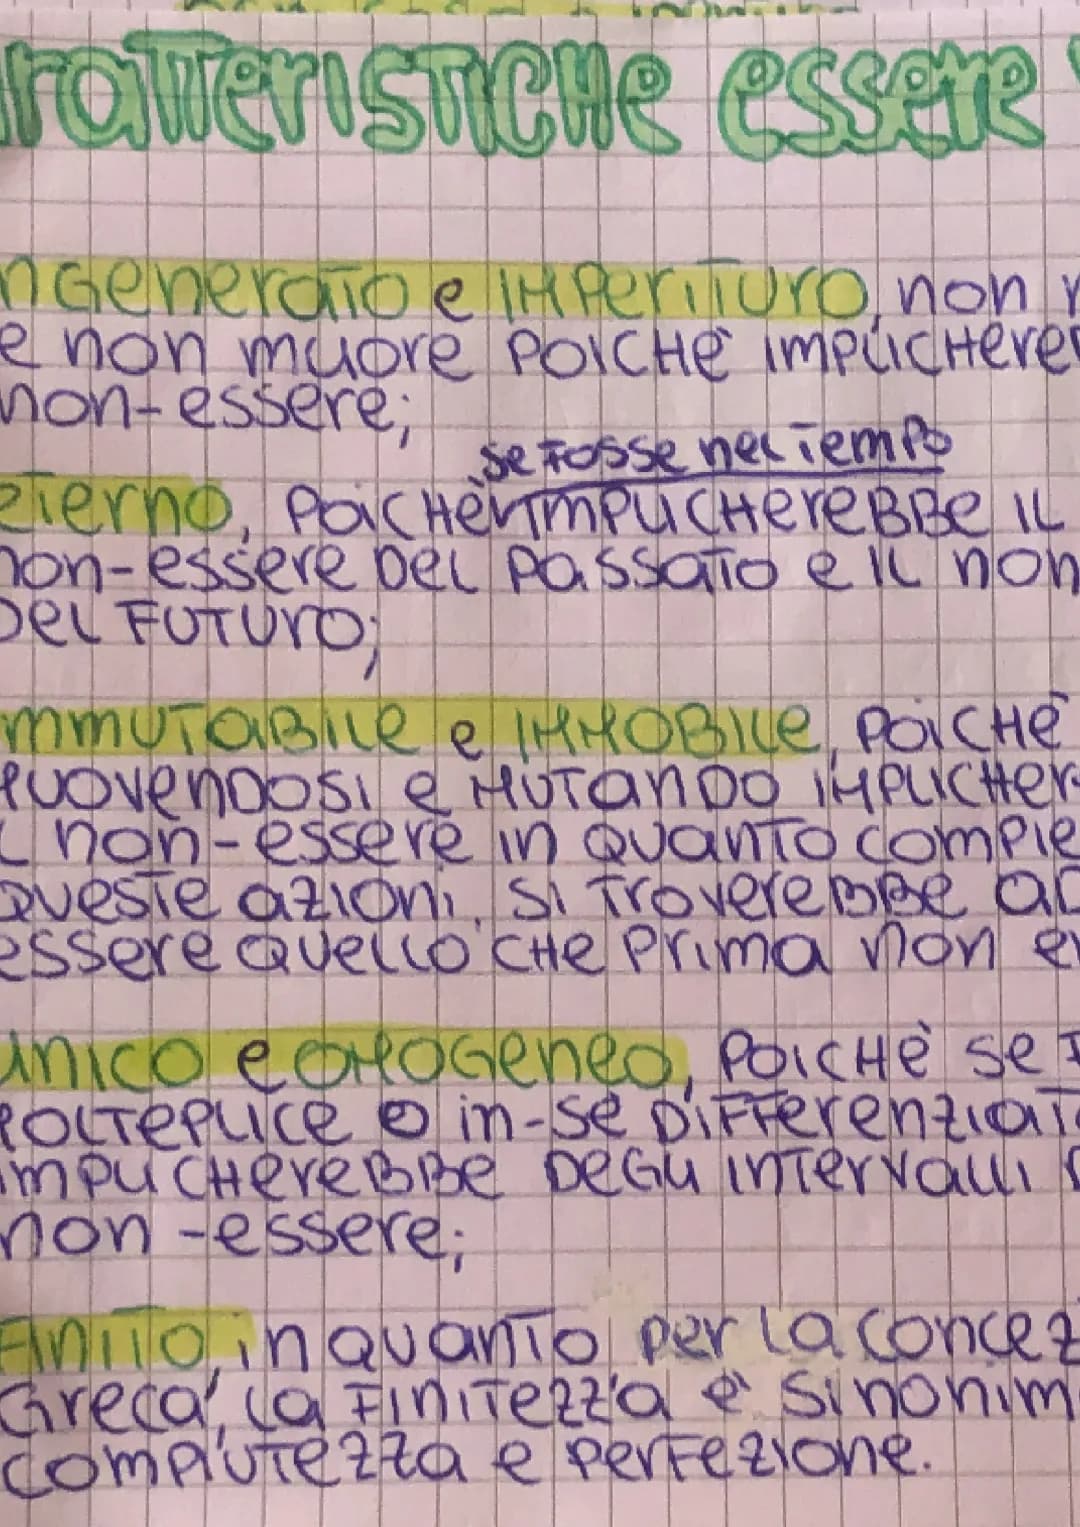 ratteristiche essere
ngenerato e imperituro, non n
e non muore poiché implichere
non-essere;
se fosse nel tempo
eterno, poiché implicherebbe il
non-essere del passato e il non
del futuro;
mmutabile e immobile, poiché
muovendosi e mutando implicher
l non-essere in quanto compie
queste azioni, si troverebbe ad
essere quello che prima non er
unico e omogeneo, poiché se f
molteplice o in-sé differenziato
implicherebbe degli intervalli d
non-essere;
finito, in quanto per la concez
greca, la finitezza è sinonim
compiutezza e perfezione.